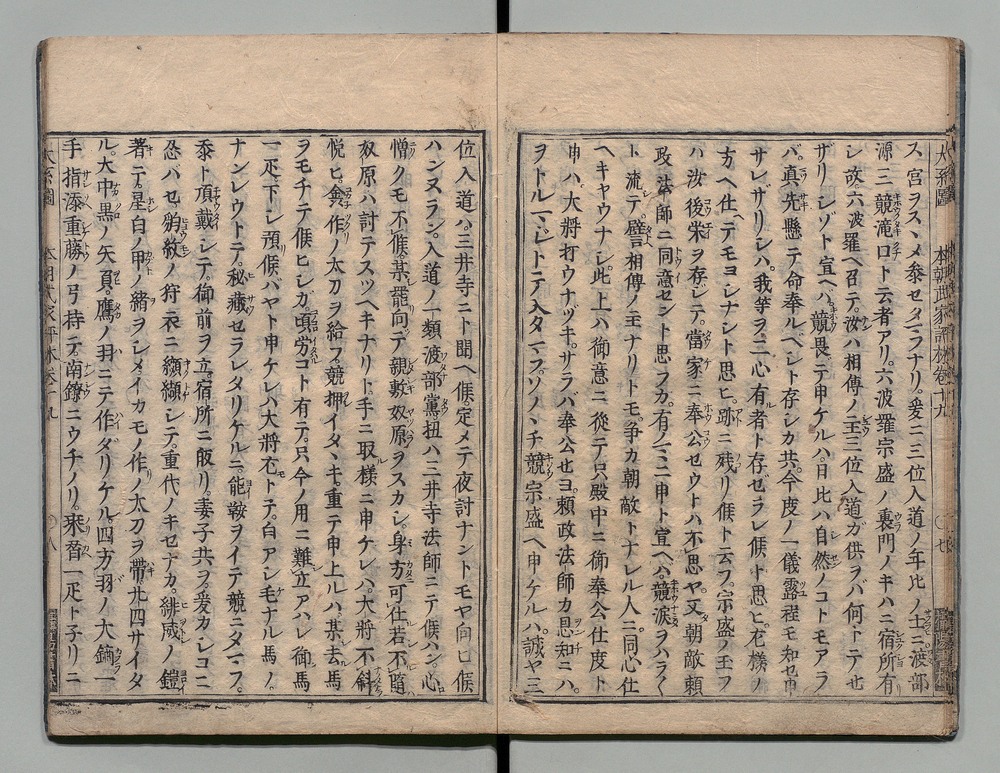 ス宮ヲスヽメ参セタマフナリ爰ニ三位入道ノ年比ノ士ニ渡部
源三競滝口ト云者アリ六波羅宗盛ノ裏門ノキハニ宿所有
レシ故六波羅ヘ召テ汝ハ相傳ノ主三位入道ガ供ヲバ何トテセ
ザリシゾト宣ヘバ競畏テ申ケルハ日比ハ自然ノコトモアラ
バ真先懸テ命奉ルベシト存シカ共今度ノ一儀露程モ知セ申
サレザリシハ我等ヲ二心有者ト存ゼラレ候ト思ヒ左様ノ
方ヘ仕ヘテモヨシナシト思ヒ跡ニ残リ候ト云フ宗盛ノ玉フ
ハ汝後栄ヲ存シテ當家ニ奉公セウトハ不思ヤ又朝敵頼
政法師ニ同意セント思フカ有ノマヽニ申ト宣ヘバ競涙ヲハラ〱
ト流テ譬相傳ノ主ナリトモ争カ朝敵トナレル人ニ同心仕
ヘキヤウナシ此上ハ御意ニ從テ只殿中ニ御奉公仕度ト
申ハ大將打ウナヅキサラバ奉公セヨ頼政法師カ恩知ニハ
ヲトルマシトテ入タマフソノヽチ競宗盛ヘ申ケルハ誠ヤ三
本朝武家評林巻十九
七
位入道ハ三井寺ニト聞ヘ候定メテ夜討ナントモヤ向ヒ候
ハンヌラン入道ノ一類渡部黨扨ハ三井寺法師ニテ候ハン心
憎クモ不候某罷向テ親敷奴原ヲスカシ身方可仕若不随
奴原ハ討テスツヘキナリト手ニ取様ニ申ケレハ大將不斜
悦ヒ糞作ノ太刀ヲ給フ競押イタヽキ重テ申上ルハ某去馬
ヲモチテ候ヒシカ頃労コト有テ只今ノ用ニ難立アハレ御馬
一疋下シ預候バヤト申ケレハ大將尤トテ白アシ毛ナル馬ノ
ナンレウトテ秘蔵セラレタリケルニ能鞍ヲイテ競ニタマフ
忝ト頂戴シテ御前ヲ立宿所ニ皈リ妻子共ヲ爰カシコニ
忍バセ豹紋ノ狩衣ニ纐纈シテ重代ノキセナカ緋威ノ鎧
著テ星白ノ甲ノ緒ヲシメイカモノ作ノ太刀ヲ帯廿四サイタ
ル大中黒ノ矢頁鷹ノ羽ニテ作ダリケル四方羽ノ大鏑一
手指添重藤ノ弓持テ南鐐ニウチノリ乗替一疋ト子リニ
大系圖
本朝武家評林巻十九
八